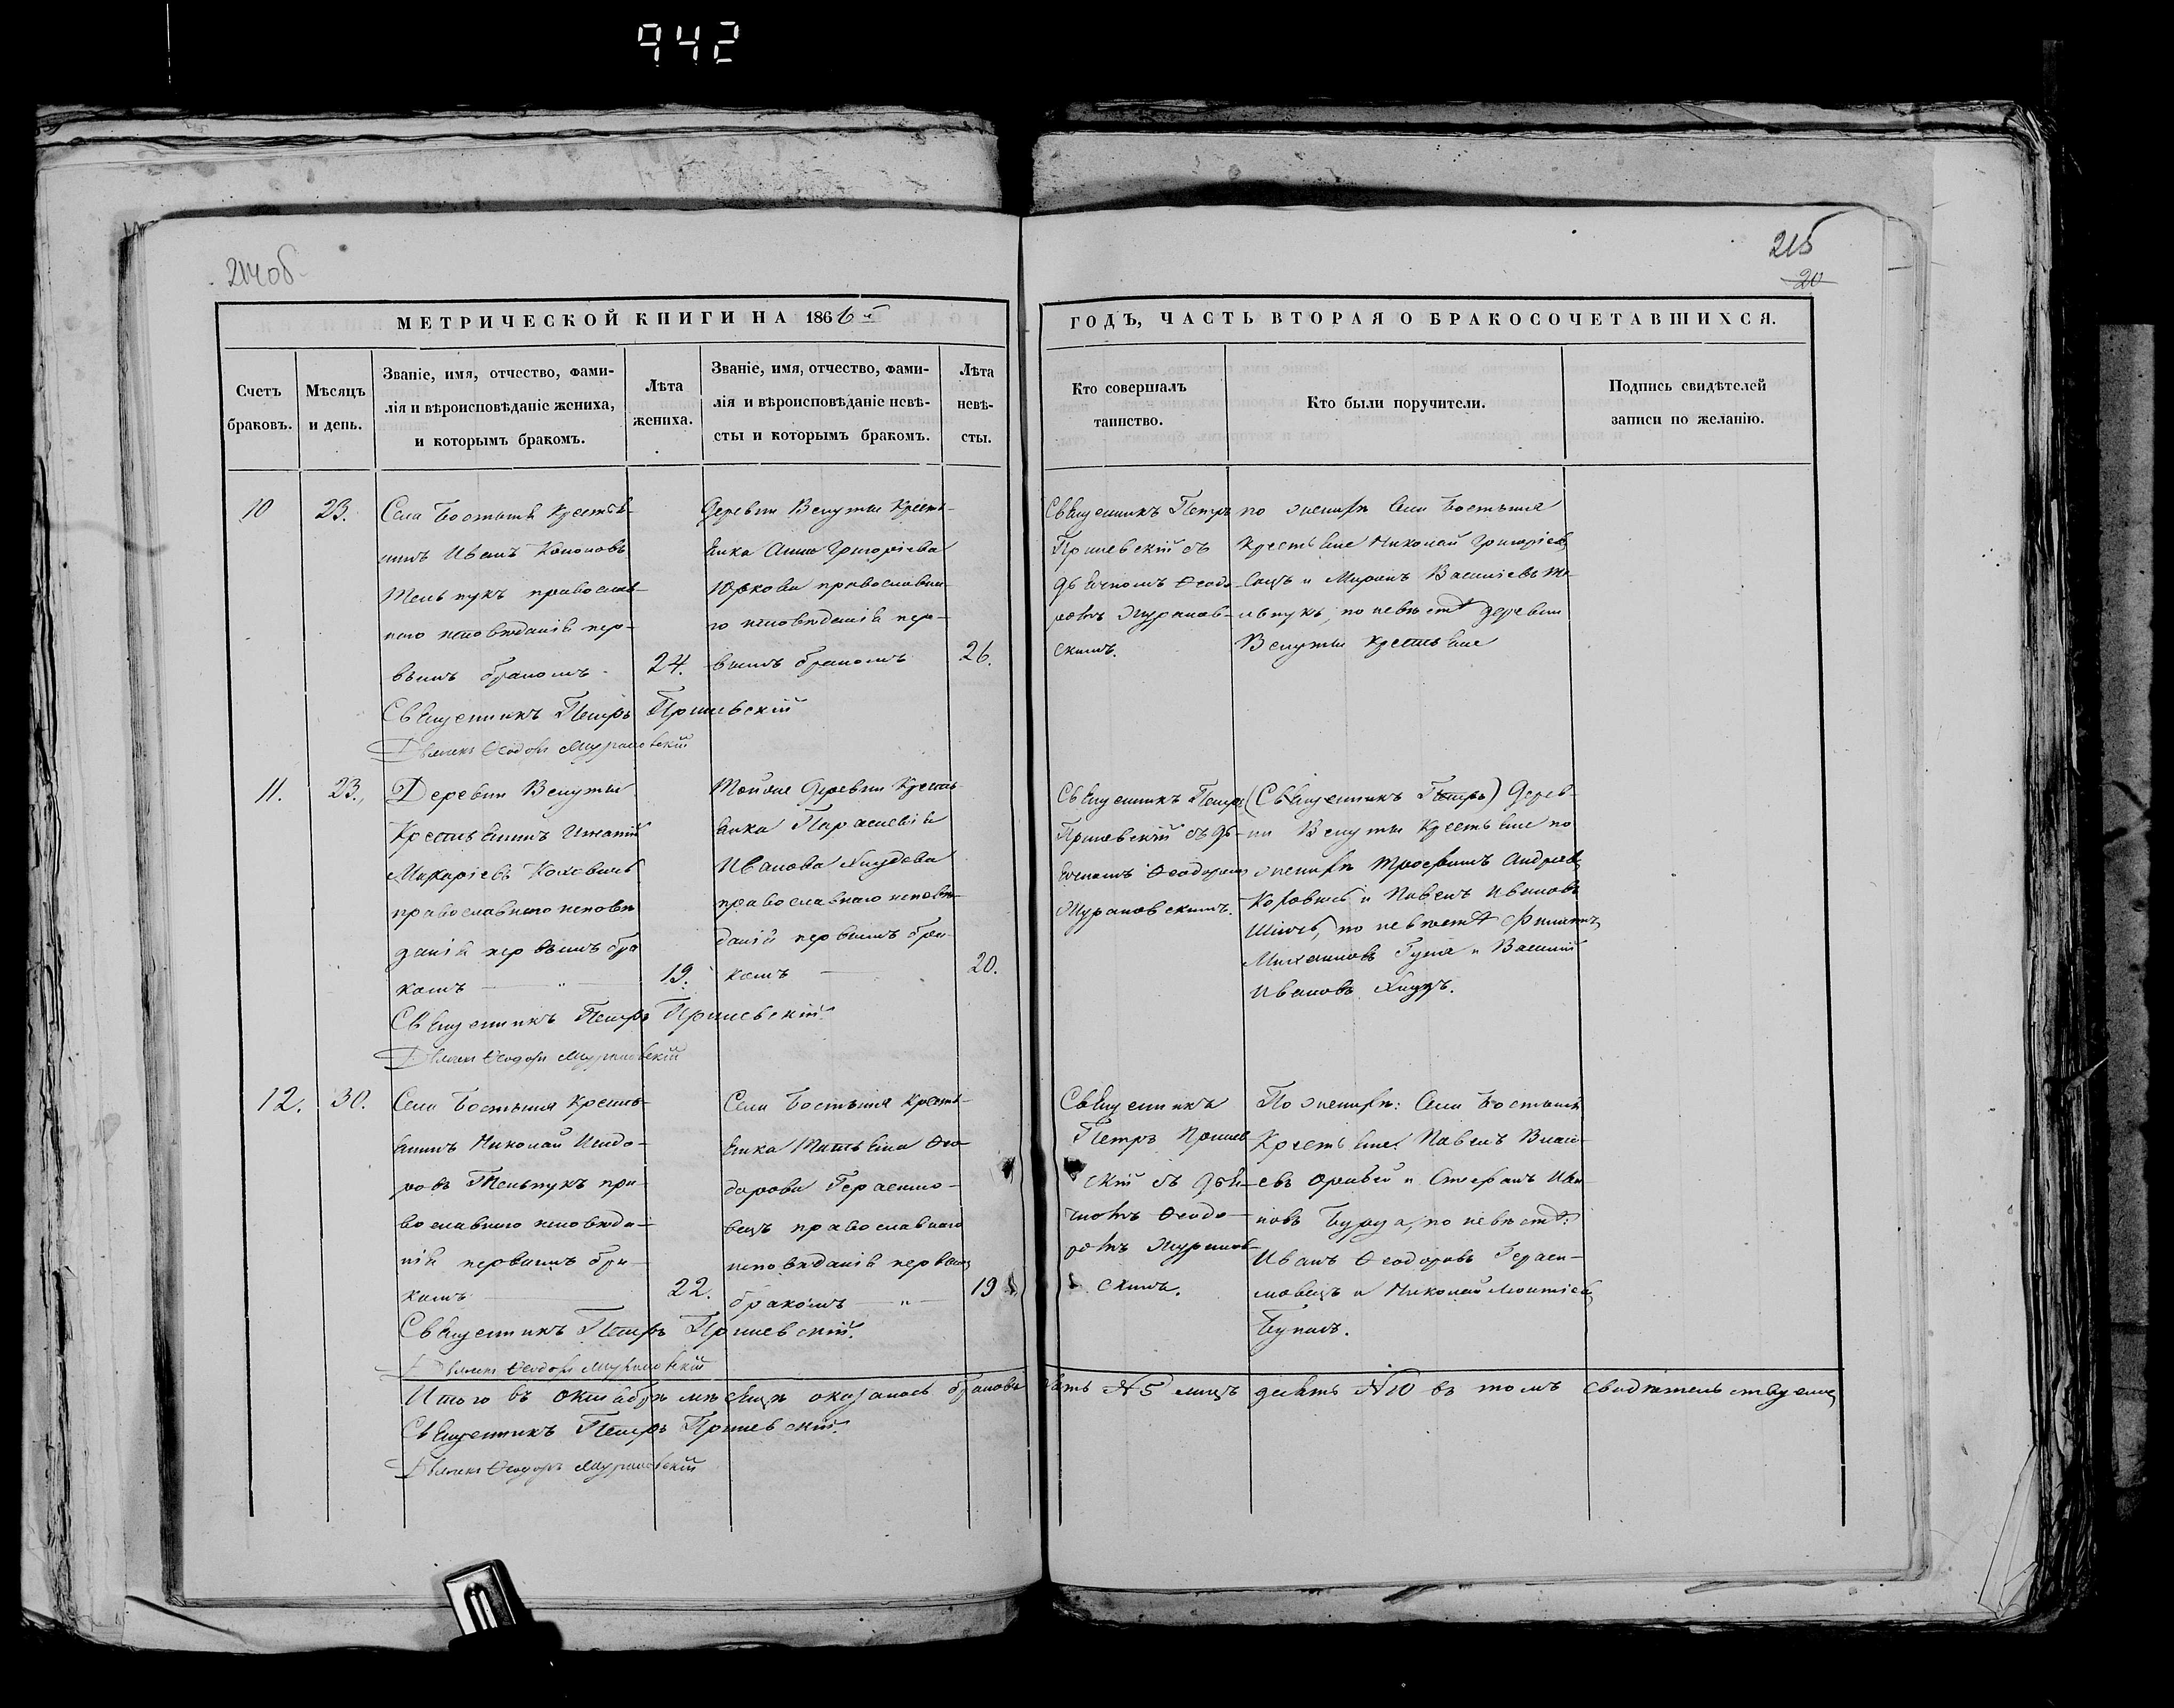 942
214об
215
20
МЕТРИЧЕСКОЙ КНИГИ НА 1866й
ГОДЪ, ЧАСТЬ ВТОРАЯ О БРАКОСОЧЕТАВШИХСЯ.
Счетъ
браковъ.
Мѣсяцъ
и день.
Званіе, имя, отчество, фами-
лія и вѣроисповѣданіе жениха,
и которымъ бракомъ.
Лѣта
жениха.
Званіе, имя, отчество, фами-
лія и вѣроисповѣданіе невѣ-
сты и которымъ бракомъ.
Лѣта
невѣ-
сты.
Кто совершалъ
таинство.
Кто были поручители.
Подпись свидѣтелей
записи по желанію.
10
23.
Села Бостыня Крестья-
нинъ Иванъ Кононовъ
Тельпукъ православ-
наго исповѣданія пер-
вымъ бракомъ
24.
Деревни Велуты Кресть-
янка Анна Григоріева
Юркова православна-
го исповѣданія пер-
вымъ бракомъ
26.
Священникъ Петръ
Пришевскій съ
дьячкомъ Ѳеодо-
ромъ Жураков-
скимъ.
по жениху Села Бостыня
Крестьяне Николай Григоріевъ
и Миронъ Василіевъ Те-
льпукъ, по невѣстѣ деревни
Велуты Крестьяне
Священникъ Петръ Пришевскій
Дьячекъ Ѳеодоръ
11.
23.
Деревни Велуты
Крестьянинъ Игнатій
Макаріевъ Коховичь
православнаго исповѣ
данія первымъ бра
комъ
19.
Тойже Деревни Кресть-
янка Параскевія
Иванова Хиздева
православнаго исповѣ-
данія первымъ бра-
комъ
20.
Священникъ Петръ
Пришевскій съ дь-
ячкомъ Ѳеодоромъ
Жураковскимъ.
(Священникъ Петръ) Дерев-
ни Велуты Крестьяне по
жениху Трофимъ Андреевъ
и Павелъ Ивановъ
по невѣстѣ Филиппъ
и Василій
Ивановъ
Священникъ Петръ Пришевскій.
Дьячекъ Ѳеодоръ
12.
30.
Села Бостыня Кресть-
янинъ Николай Исидо-
ровъ Тельпукъ пра-
вославнаго исповѣда-
нія первымъ бра-
комъ
22.
Села Бостыня Кресть-
янка Татьяна Ѳео-
дорова Герасимо-
вецъ православнаго
исповѣданія первымъ
бракомъ
19
Священникъ
Петръ Пришев-
скій съ дья-
чкомъ Ѳеодо-
ромъ Жураков-
скимъ.
По жениху: Села Бостыня
Крестьяне: Павелъ Власі-
евъ и Стефанъ Ива-
новъ Бурда, по невѣстѣ:
Иванъ Ѳеодоровъ Гераси-
мовецъ и Николай
Букачъ.
Священникъ Петръ Пришевскій.
Дьячекъ Ѳеодоръ
Итого въ октябрѣ мѣсяцѣ оказалось браковъ пять №5 лицъ десять №10 въ томъ свидѣтельствуемъ
Священникъ Петръ Пришевскій.
Дьячекъ Ѳеодоръ